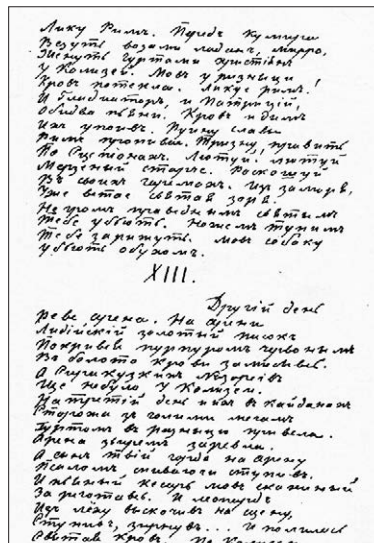 Лику Римъ. Передъ Кумира
Везуть возами ладанъ, мѵрро,
Женуть Гуртами христіянъ
У Колизей. Мовъ у ризныци
Кровъ потекла. Ликує римъ!
И Гладіаторъ, и Патрицій,
Обидва пьяни. Кровъ и дымъ
Ихъ упоивъ. Руину славы
Римъ пропива. Тризну править
По Сципіонахъ. Лютуй! лютуй
Мерзеный старче. Роскошуй
Въ своихъ гаремахъ. Изъ за моря,
Уже встає святая зоря.
Не громомъ праведнымъ святымъ
Тебе убьють. Ножемъ тупимъ
Тебе зарижуть. Мовъ собаку
убьють обухомъ.
XIII.
Другій день
Реве арена. На арени
Лидійскій золотый писокъ
Покрывся пурпуромъ червонымъ
Въ болото крови замисивсь.
А Сиракузкихъ Назореївъ
Ще небуло у Колизеи.
На третій день и ихъ въ кайданахъ
Сторожа зъ голими мечами
Гуртомъ въ ризницю привела.
Арена звиремъ заревла.
А сынъ твій гордо на арену
Псаломъ спиваючи ступивъ.
И пьяный кесарь мовъ скаженый
За реготавсь. И леопардъ
Изъ лёху выскочивъ на сцену,
Ступивъ, зирнувъ... И полилась
Святая кровъ. По Колизею